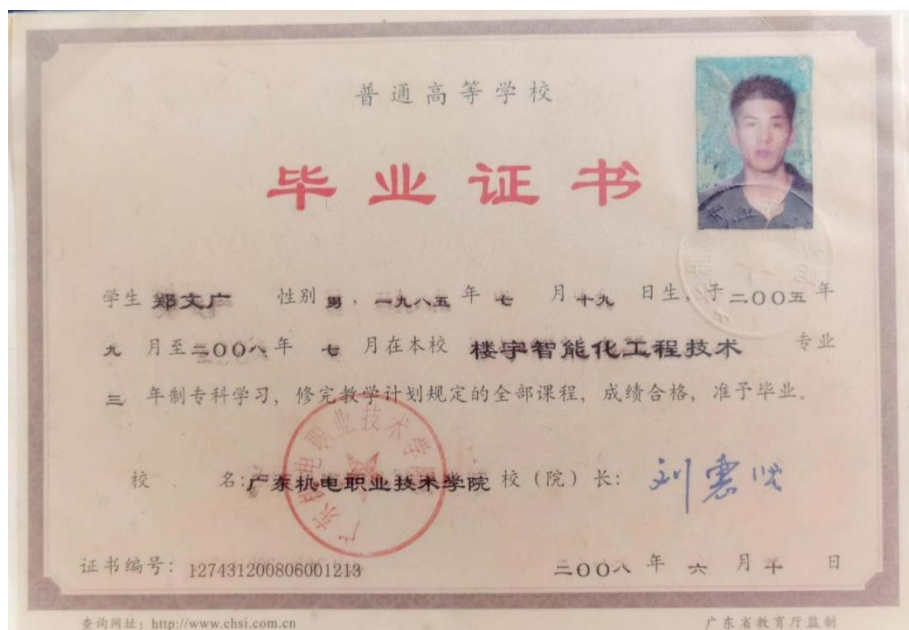 普通高等学校
毕业证书
学生 郑文广 性别 男，一九八五 年 七 月 十九 日生，于二〇〇五年
九 月至二〇〇八年 七 月在本校 楼宇智能化工程技术 专业
三 年制专科学习，修完教学计划规定的全部课程，成绩合格，准予毕业。
校 名：广东机电职业技术学院 校（院）长：
广东机电职业技术学院
证书编号：127431200806001213 二〇〇八 年 六 月 日
查询网址：http://www.chsi.com.cn 广东省教育厅监制